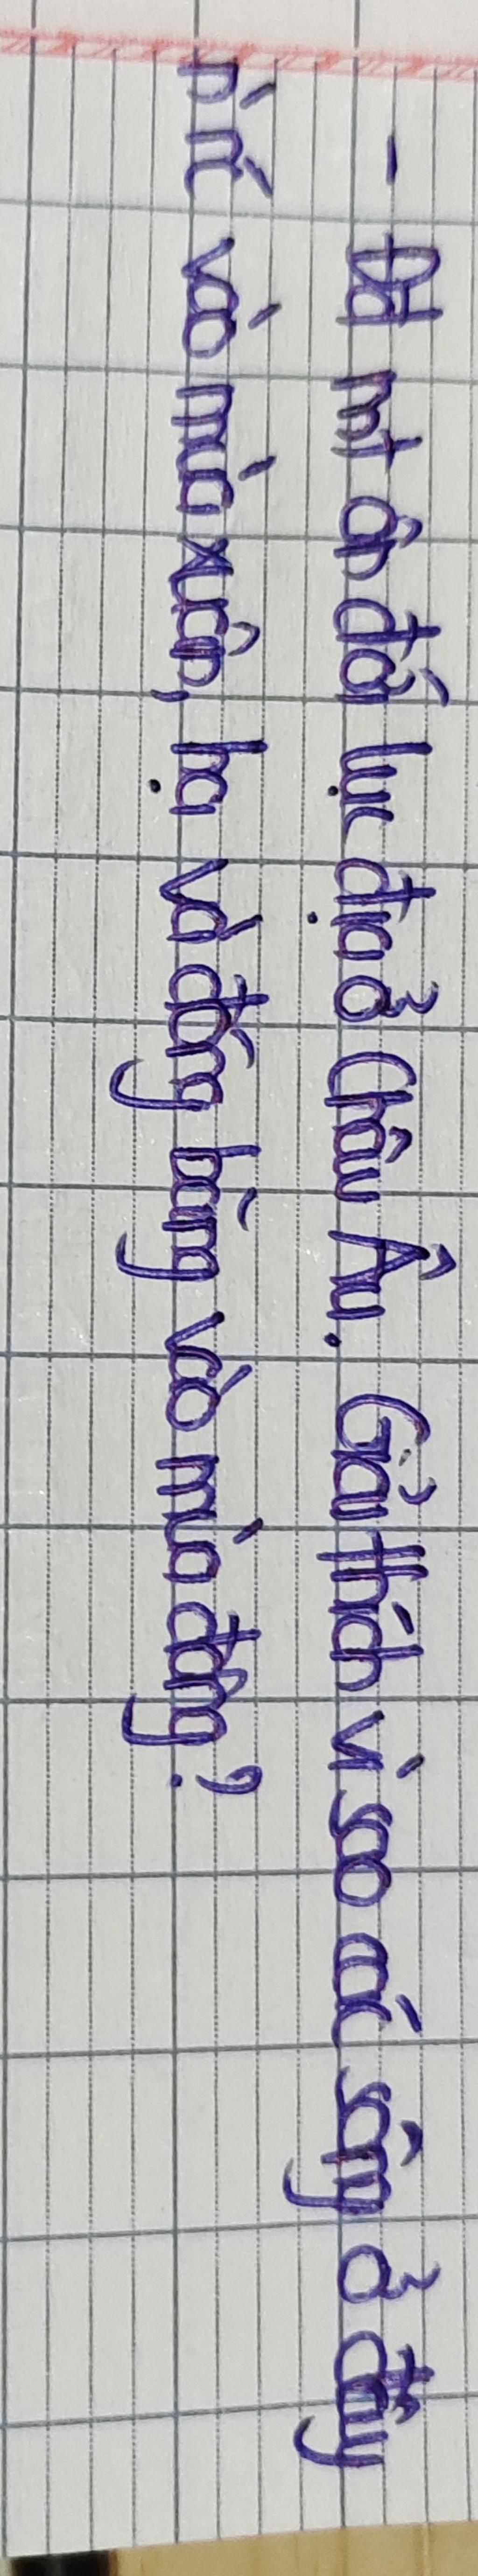 - Đđ mt ôn đới lục địa ở Châu Âu. Giải thích vì sao các sông ở đây
n' nc' vào mùa xuân, hạ và đóng băng vào mùa đông?